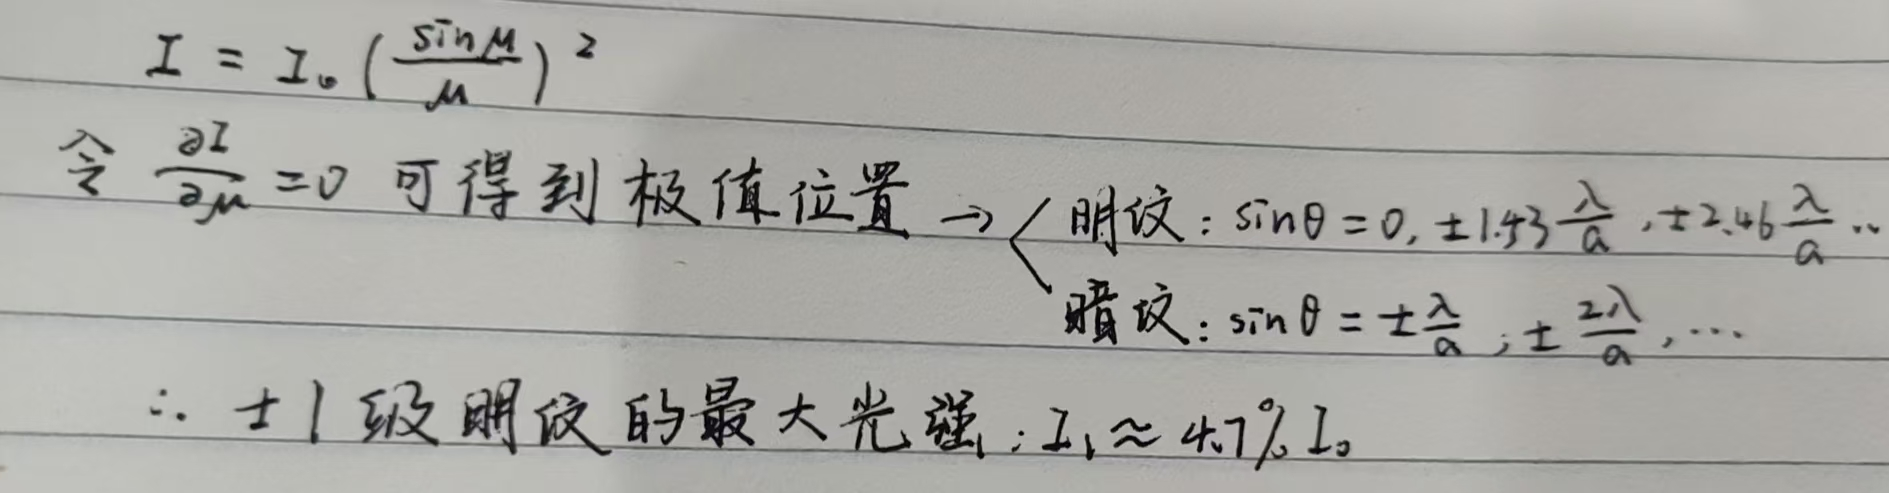 I = I₀ (sinμ/μ)²
令 ∂I/∂μ = 0 可得到极值位置 → < 明纹: sinθ = 0, ±1.43 λ/a, ±2.46 λ/a ..
暗纹: sinθ = ± λ/a, ± 2λ/a, ...
∴ ±1级明纹的最大光强: I₁ ≈ 4.7% I₀